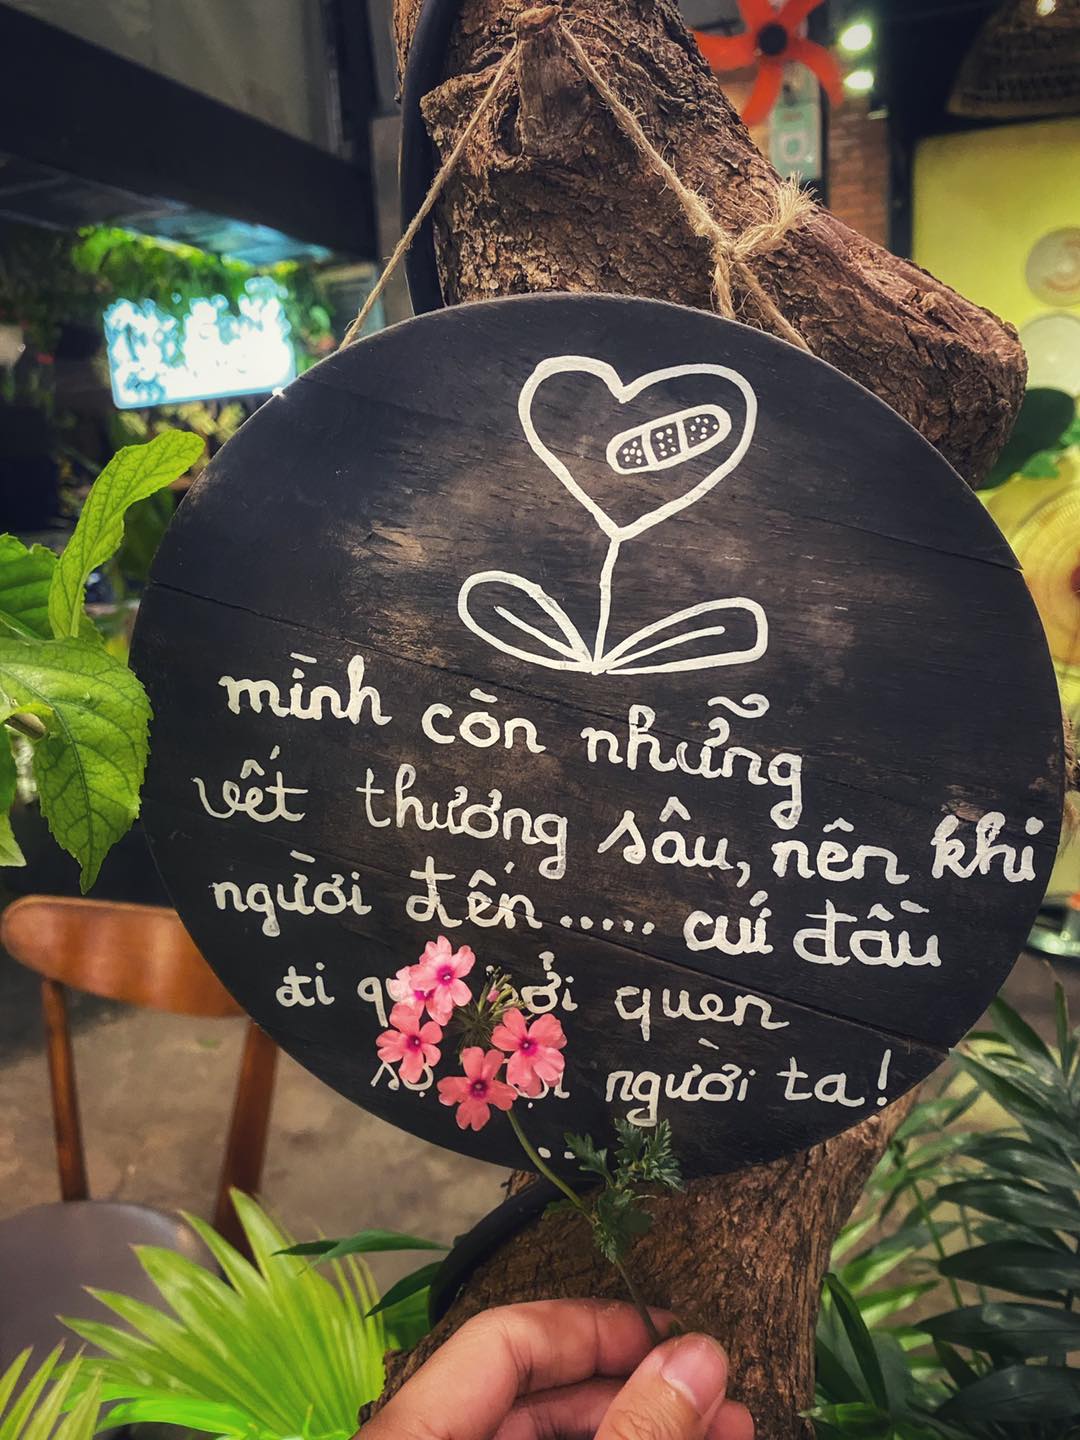 mình còn những
vết thương sâu, nên khi
người đến ..... cứ đầu
đi quen
người ta!